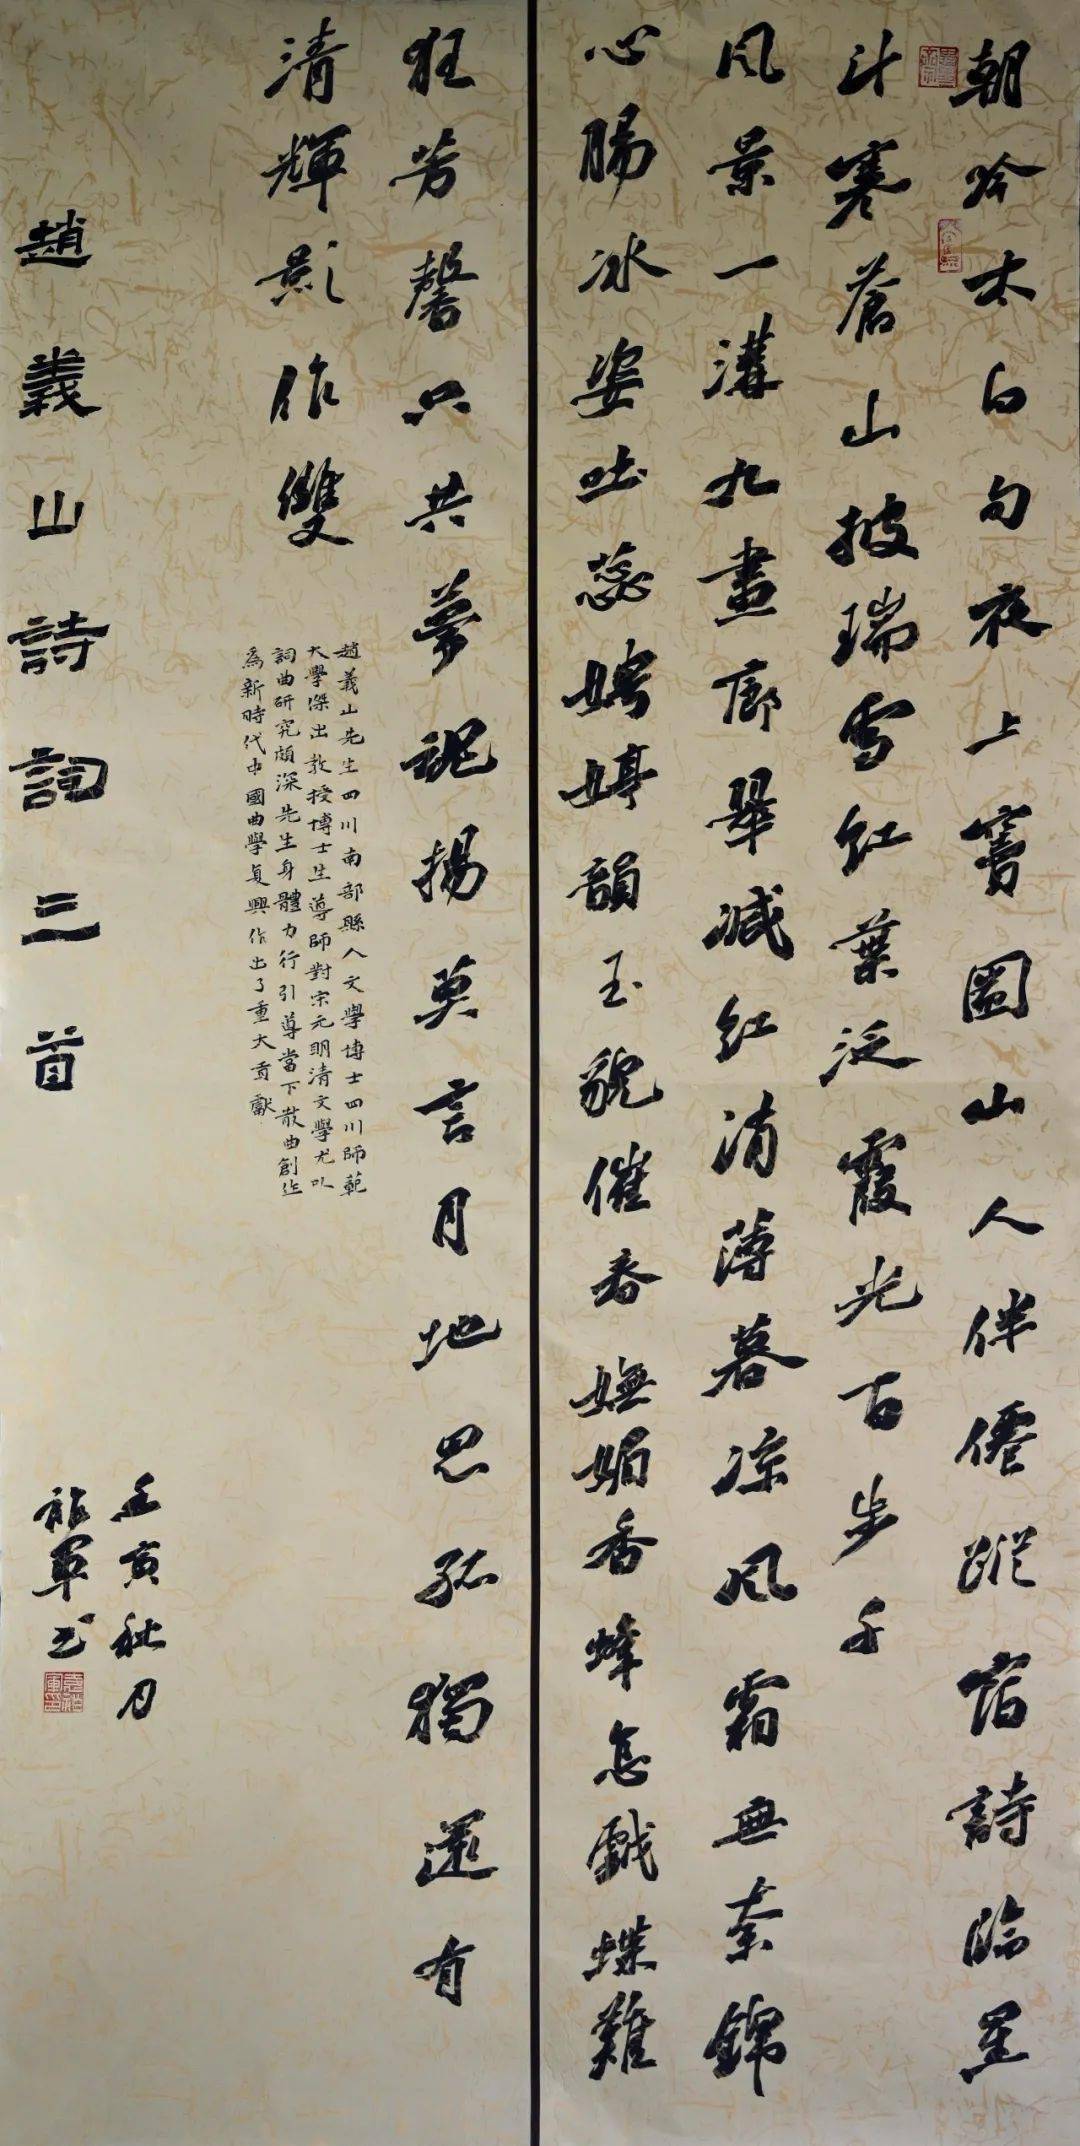 朝吟太白句夜上竇圌山人伴僊蹤宿詩臨星
斗寒蒼山披瑞雪紅葉泛霞光百步千
風景一溝九畫廊翠減紅消薄暮涼風霜無奈錦
心腸冰姿吐蕊娉婷韻玉貌催春嫵媚香蜂怎戲蝶難
狂芳馨只共夢魂揚莫言月地思孤獨還有
清輝影作雙
趙義山先生四川南部縣人文學博士四川師範
大學傑出教授博士生導師對宗元明清文學尤以
詞曲研究頗深先生身體力行引導當下散曲創作
為新時代中國曲學复興作出了重大贡獻
趙義山詩詞三首
壬寅秋月
祖軍书